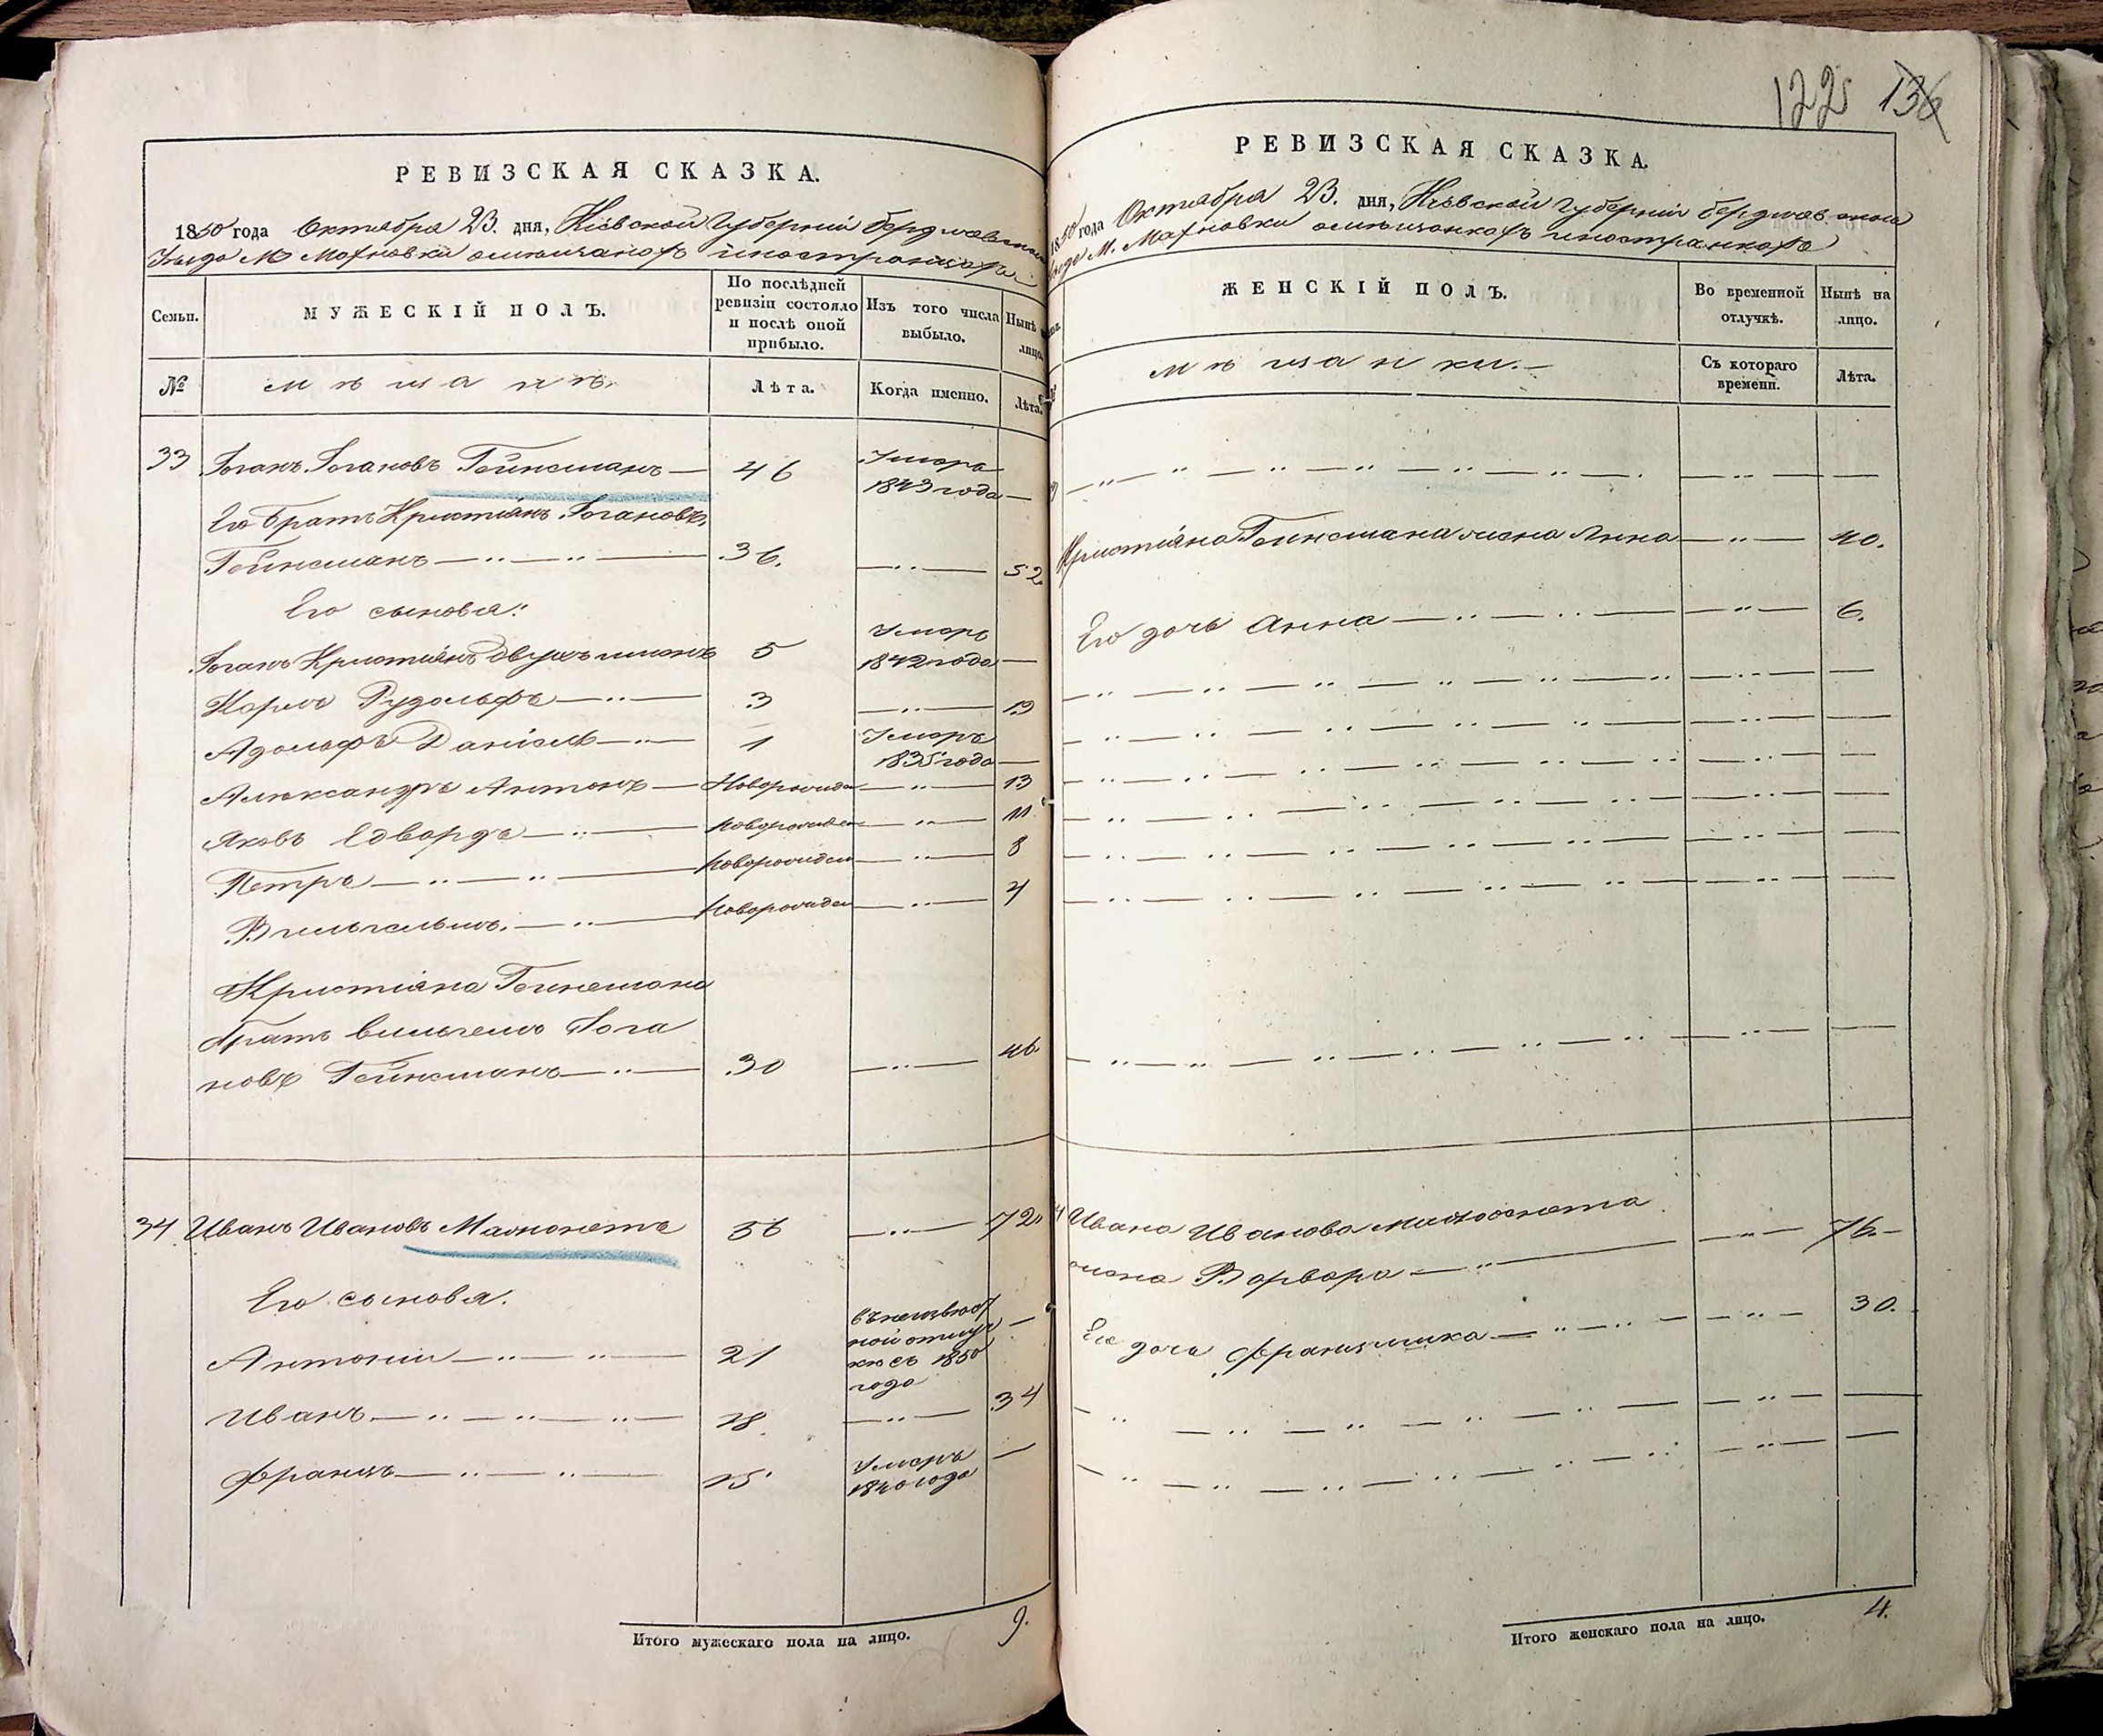 РЕВИЗСКАЯ СКАЗКА.
1850 года Октября 23. дня, Кіевской Губерніи Бердичевскаго
Уѣзда М. Махновки о мѣщанахъ иностранцахъ
Семьи.
МУЖЕСКІЙ ПОЛЪ.
По послѣдней ревизіи состояло и послѣ оной прибыло.
Изъ того числа выбыло.
Нынѣ на лицо.
№
мѣщанѣ.
Лѣта.
Когда именно.
Лѣта.
33 Іоганъ Іогановъ Гейнеманъ — 46 Умеръ 1843 года —
Его братъ Кристіянъ Іогановъ
Гейнеманъ — 36. — 52.
Его сыновья:
Іоганъ Кристіянъ двухъ именъ 5 Умеръ 1842 года —
Карлъ Рудольфъ — 3 — 19
Адольфъ Даніель — 1 Умеръ 1835 года —
Александръ Антонъ — Новорожден — 13
Яковъ Едвардъ — новорожден — 11
Петръ — новорожден — 8
Вильгельмъ. — новорожден — 4
Кристіяна Гейнемана
братъ Вильгемъ Іога
новъ Гейнеманъ — 30 — 46.
34 Иванъ Ивановъ 56 — 72.
Его сыновья.
Антоній — 21 отлуч кѣ съ 1850 года —
Иванъ — 18. — 34
Францъ — 15 Умеръ 1840 года —
Итого мужескаго пола на лицо. 9.
122 136
РЕВИЗСКАЯ СКАЗКА.
1850 года Октября 23. дня, Кіевской Губерніи Бердичевскаго
уѣзда М. Махновки о мѣщанкахъ иностранкахъ
ЖЕНСКІЙ ПОЛЪ.
Во временной отлучкѣ.
Нынѣ на лицо.
мѣщанки. —
Съ котораго времени.
Лѣта.
Кристіяна Гейнемана жена Анна — 40.
Его дочь Анна — 6.
Ивана Иванова
жена Варвара — 76. —
Ея дочь Францишка — 30.
Итого женскаго пола на лицо. 4.